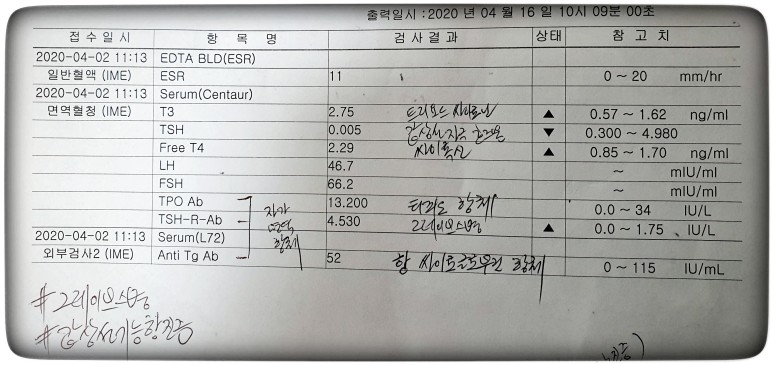 출력일시 : 2020 년 04 월 16 일 10시 09분 00초
접 수 일 시 항 목 명 검 사 결 과 상태 참 고 치
2020-04-02 11:13 EDTA BLD(ESR)
일반혈액 (IME) ESR 11 0 ~ 20 mm/hr
2020-04-02 11:13 Serum(Centaur)
면역혈청 (IME) T3 2.75 ▲ 0.57 ~ 1.62 ng/ml
TSH 0.005 갑상선자극 호르몬 ▼ 0.300 ~ 4.980
Free T4 2.29 싸이록신 ▲ 0.85 ~ 1.70 ng/ml
LH 46.7 ~ mIU/ml
FSH 66.2 ~ mIU/ml
TPO Ab 자가 13.200 항체 0.0 ~ 34 IU/L
TSH-R-Ab 면역 4.530 그레이브스병 ▲ 0.0 ~ 1.75 IU/L
2020-04-02 11:13 Serum(L72) 항체
외부검사2 (IME) Anti Tg Ab 52 항 싸이로글로부린 항체 0 ~ 115 IU/mL
#그레이브스병
#갑상선기능항진증